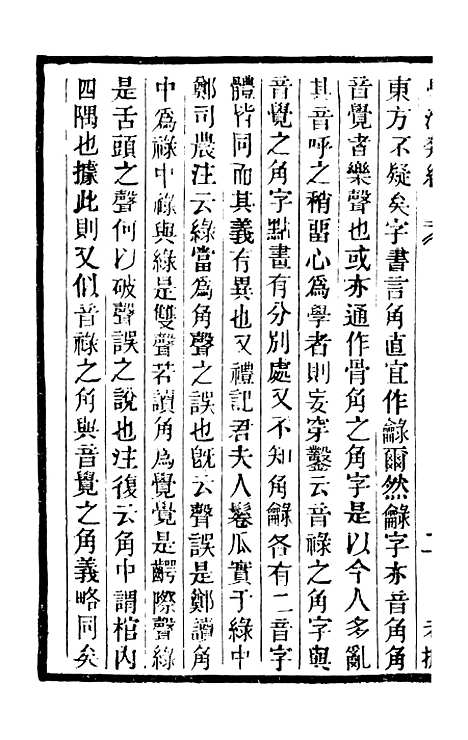 東方不疑矣字書言角直宜作龣爾然龣字亦音角角
音覺者樂聲也或亦通作骨角之角字是以今人多亂
其音呼之稍畱心爲學者則妄穿鑿云音祿之角字與
音覺之角字點畫有分别處又不知角龣各有二音字
體皆同而其義有異也又禮記君夫人鬊瓜實于綠中
鄭司農注云綠當爲角聲之誤也旣云聲誤是鄭讀角
中爲祿中祿與綠是雙聲若讀角爲覺覺是齶際聲綠
是舌頭之聲何以破聲誤之說也注復云角中謂棺内
四隅也據此則又似音祿之角與音覺之角義略同矣